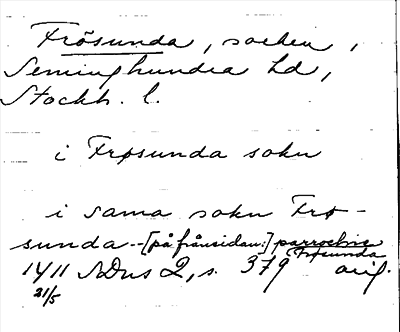 Frösunda, socken,
Seminghundra hd,
Stockh. l.
i Frøsunda sokn
i sama sokn Frø-
sunda -- [på frånsidan:] parrochie
Frøsunda
1411 SDns 2, s. 379 orig.
21/5